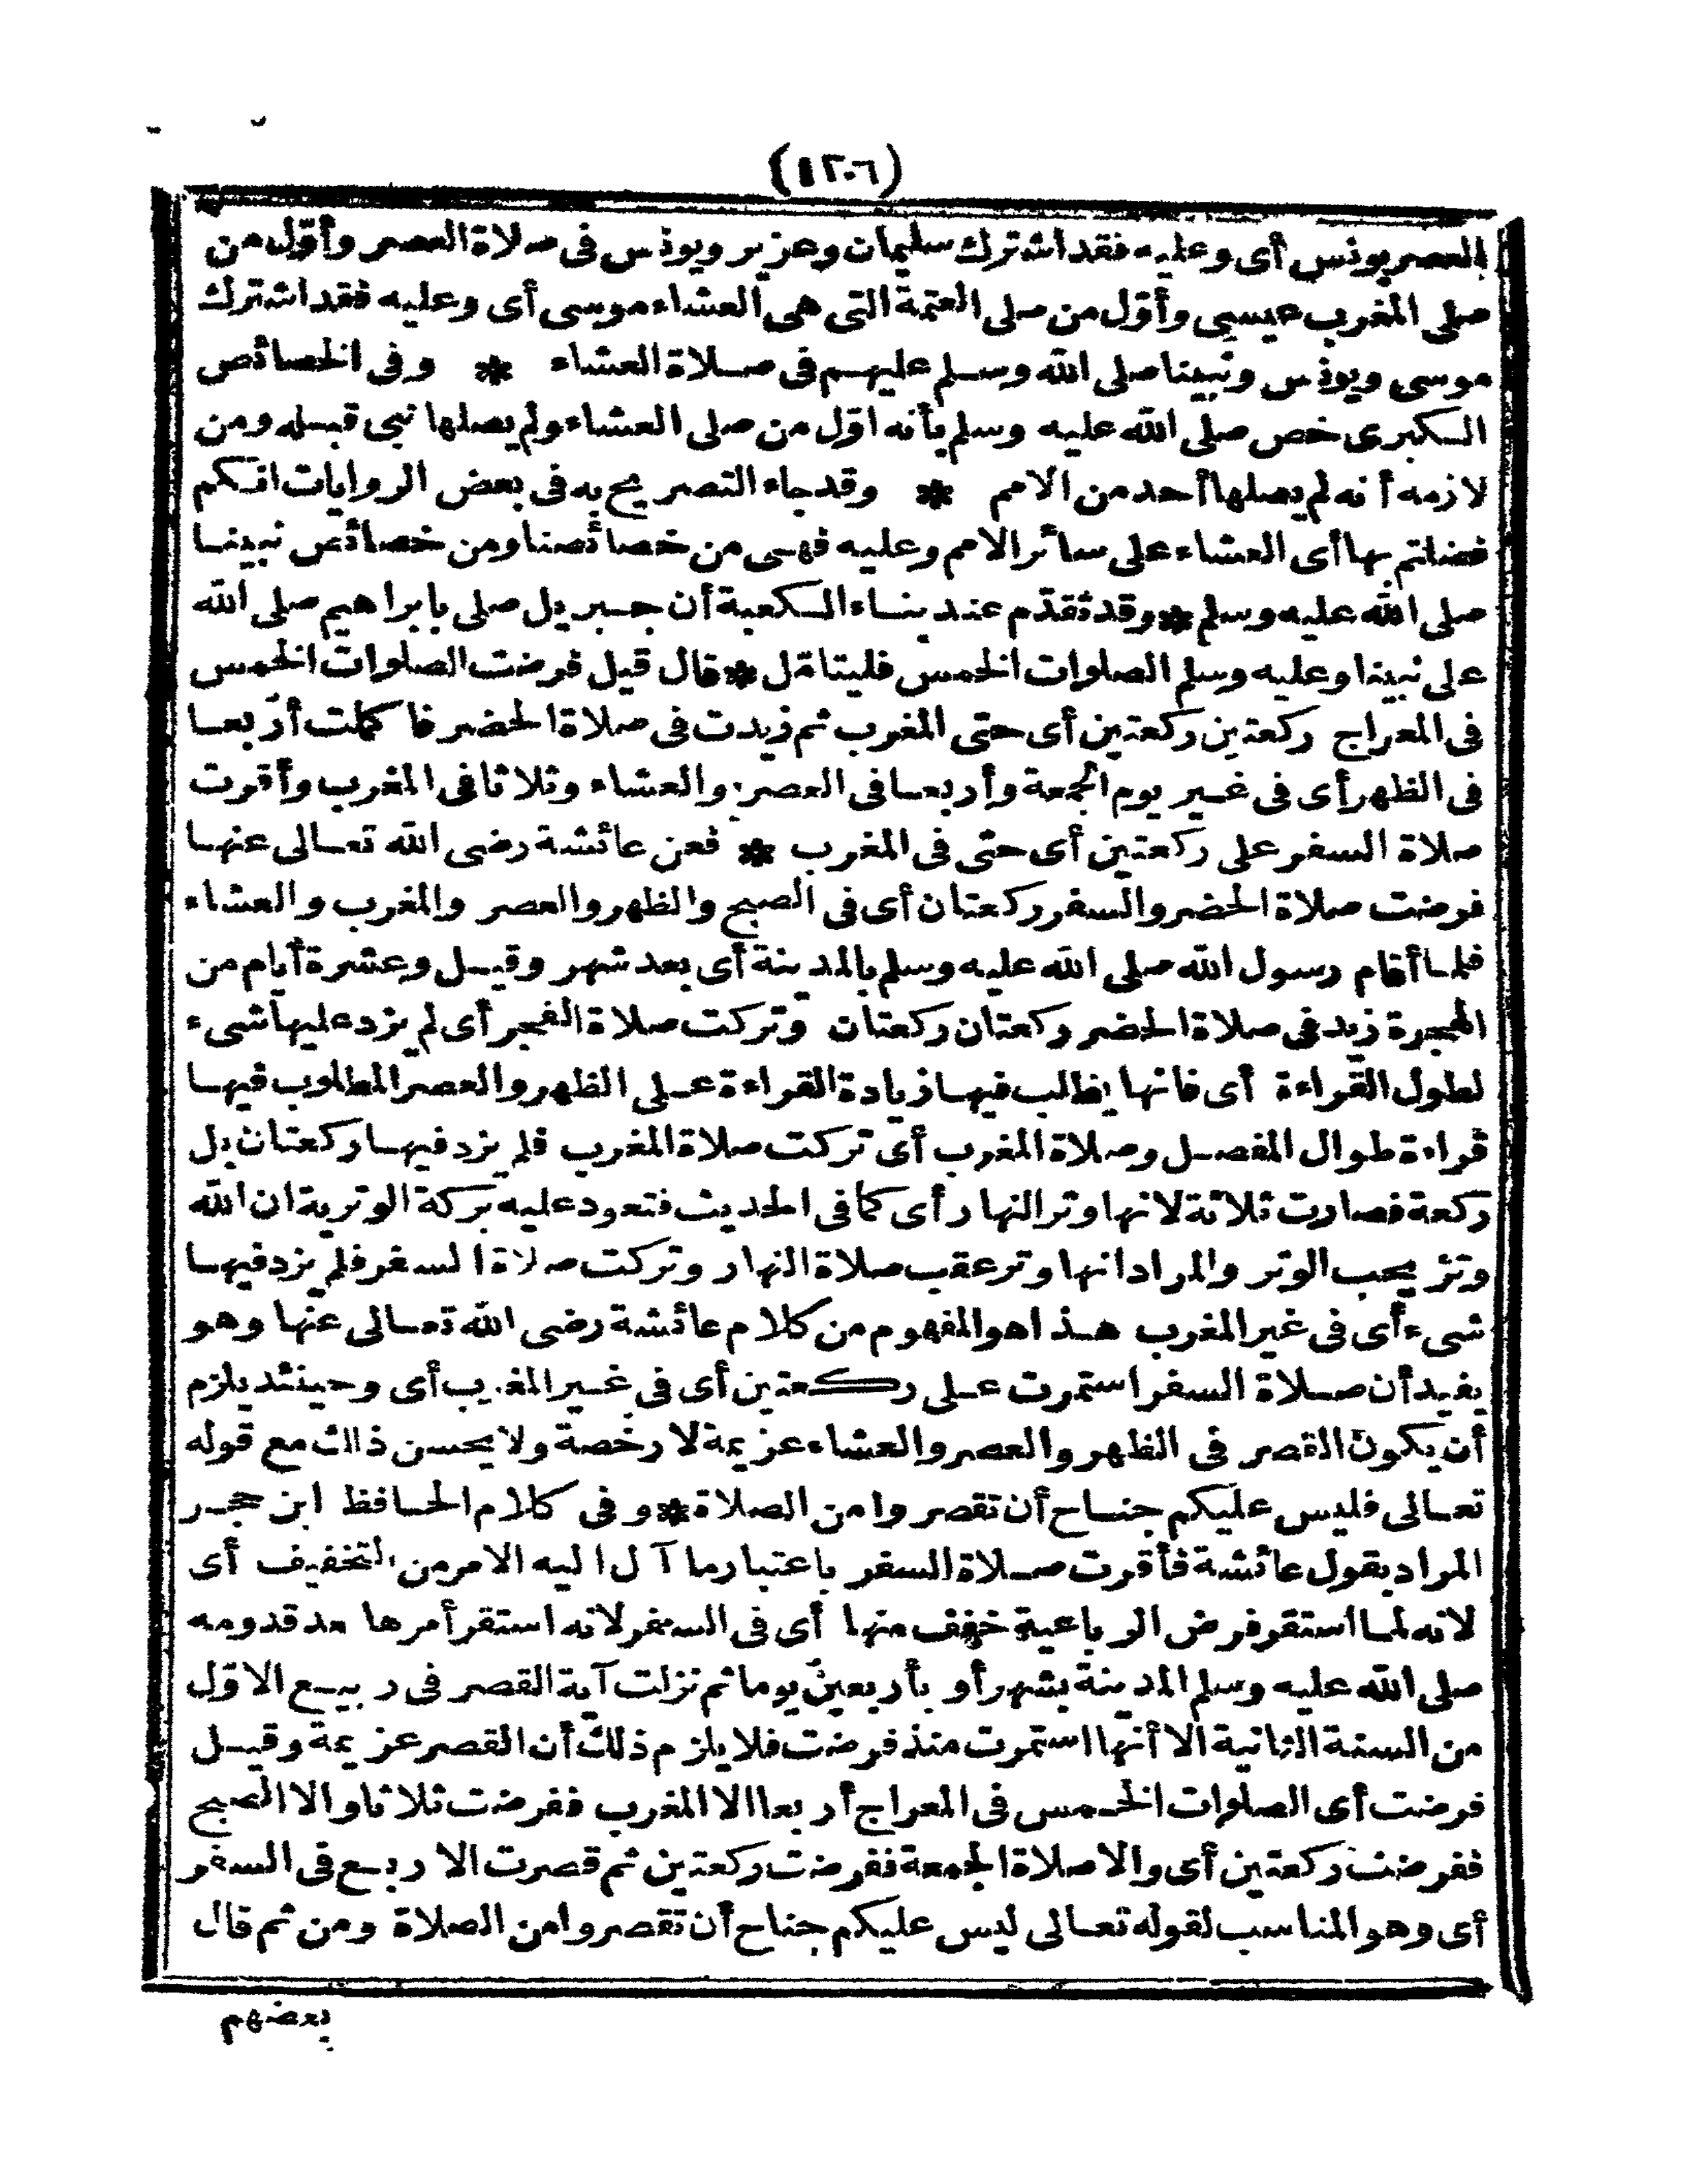 (١٢٠٦)
العصر يونس أى وعليه فقد اشترك سليمان وعزير ويونس فى صلاة العصر وأوّل من
صلى المغرب عيسى وأوّل من صلى العتمة التى هى العشاء موسى أى وعليه فقد اشترك
موسى ويونس ونبينا صلى الله وسلم عليهم فى صلاة العشاء * وفى الخصائص
الكبرى خص صلى الله عليه وسلم بأنه اوّل من صلى العشاء ولم يصلها نبى قبله ومن
لازمه أنه لم يصلها أحد من الامم * وقد جاء التصريح به فى بعض الروايات انكم
فضلتم بها أى العشاء على سائر الامم وعليه فهى من خصائصنا ومن خصائص نبينا
صلى الله عليه وسلم * وقد تقدّم عند بناء الكعبة أن جبريل صلى بابراهيم صلى الله
على نبينا وعليه وسلم الصلوات الخمس فليتأمّل * قال قيل فرضت الصلوات الخمس
فى المعراج ركعتين ركعتين أى حتى المغرب ثم زيدت فى صلاة الحضر فا كملت أربعا
فى الظهر أى فى غير يوم الجمعة وأربعا فى العصر والعشاء وثلاثا فى المغرب وأقرت
صلاة السفر على ركعتين أى حتى فى المغرب * فعن عائشة رضى الله تعالى عنها
فرضت صلاة الحضر والسفر ركعتان أى فى الصبح والظهر والعصر والمغرب والعشاء
فلما أقام رسول الله صلى الله عليه وسلم بالمدينة أى بعد شهر وقيل وعشرة أيام من
الهجرة زيد فى صلاة الحضر ركعتان ركعتان وتركت صلاة الفجر أى لم يزد عليها شىء
لطول القراءة أى فانها يطلب فيها زيادة القراءة على الظهر والعصر المطلوب فيها
قراءة طوال المفصل وصلاة المغرب أى تركت صلاة المغرب فلم يزد فيها ركعتان بل
ركعة فصارت ثلاثة لانها وتر النهار أى كما فى الحديث فتعود عليه بركة الوترية ان الله
وتر يحب الوتر والمراد انها وتر عقب صلاة النهار وتركت صلاة السفر فلم يزد فيها
شىء أى فى غير المغرب هذا هو المفهوم من كلام عائشة رضى الله تعالى عنها وهو
يفيد أن صلاة السفر استمرت على ركعتين أى فى غير المغرب أى وحينئذ يلزم
أن يكون القصر فى الظهر والعصر والعشاء عزيمة لا رخصة ولا يحسن ذلك مع قوله
تعالى فليس عليكم جناح أن تقصروا من الصلاة * وفى كلام الحافظ ابن حجر
المراد بقول عائشة فأقرت صلاة السفر باعتبار ما آل اليه الامر من التخفيف أى
لانه لما استقر فرض الرباعية خفف منها أى فى السفر لانه استقر أمرها بعد قدومه
صلى الله عليه وسلم المدينة بشهر أو بأربعين يوما ثم نزلت آية القصر فى ربيع الاوّل
من السنة الثانية الا أنها استمرت منذ فرضت فلا يلزم ذلك أن القصر عزيمة وقيل
فرضت أى الصلوات الخمس فى المعراج أربعا الا المغرب ففرضت ثلاثا والا الصبح
ففرضت ركعتين أى والا صلاة الجمعة ففرضت ركعتين ثم قصرت الاربع فى السفر
أى وهو المناسب لقوله تعالى ليس عليكم جناح أن تقصروا من الصلاة ومن ثم قال
بعضهم